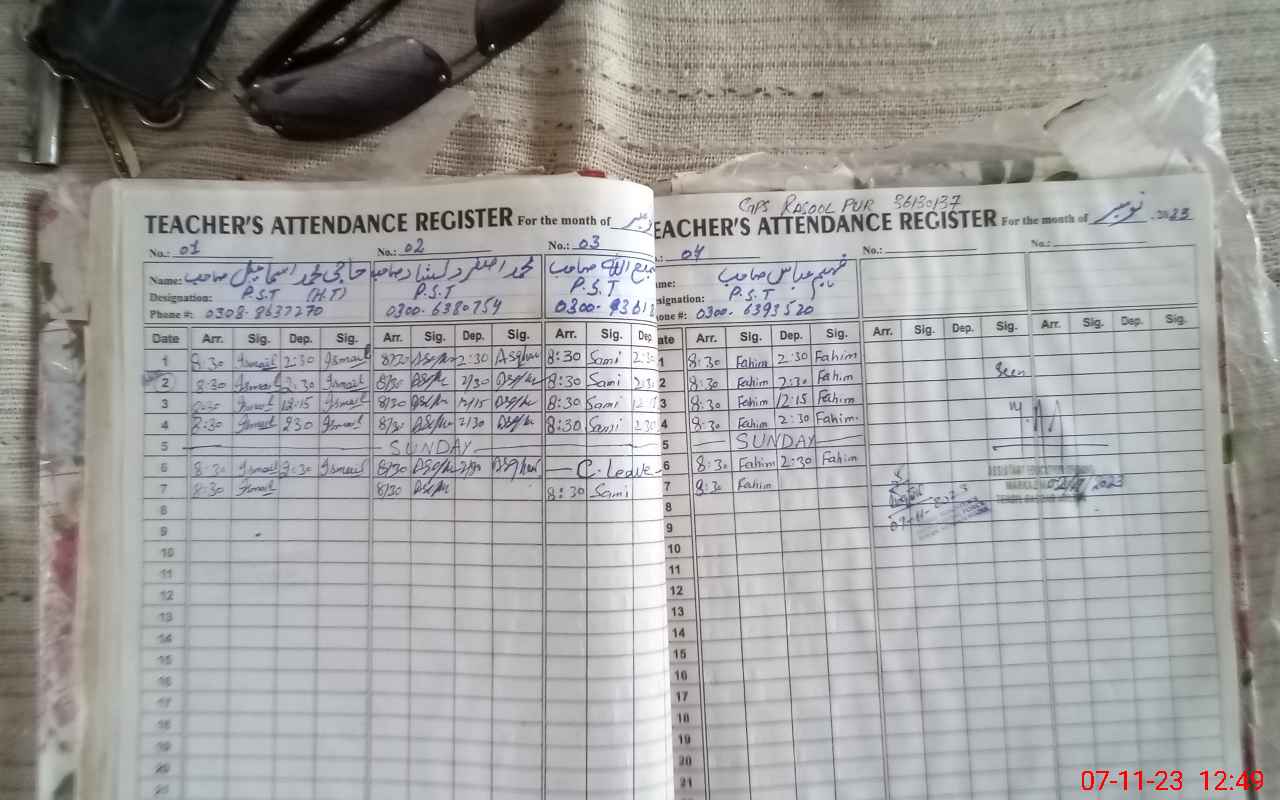 TEACHER'S ATTENDANCE REGISTER For the month of
No.: 01 No.: 02 No.: 03
Name: حاجی محمد اسماعیل صاحب محمد اصغر دلشاد صاحب سمیع اللہ صاحب
Designation: P.S.T (H.T) P.S.T P.S.T
Phone #: 0308-8637270 0300-6380754 0300-
Date Arr. Sig. Dep. Sig. Arr. Sig. Dep. Sig. Arr. Sig. Dep.
1 8:30 Ismail 2:30 Ismail 8/30 Asghar 2:30 Asghar 8:30 Sami 2:30
2 8:30 Ismail 2:30 Ismail 8/30 Asghar 2/30 Asghar 8:30 Sami 2:30
3 8:30 Ismail 12:15 Ismail 8/30 Asghar 12/15 Asghar 8:30 Sami 12:15
4 Ismail 230 Ismail 8/30 Asghar 2/30 Asghar 8:30 Sami 2:30
5 SUNDAY
6 8:30 Ismail 2:30 Ismail 8/30 Asghar 2/30 Asghar C. Leave
7 8:30 Ismail 8/30 Asghar 8:30 Sami
8
9
10
11
12
13
14
15
16
17
18
19
20
21
GPS RASOOL PUR 36130137
TEACHER'S ATTENDANCE REGISTER For the month of نومبر 2023
No.: 04 No.: No.:
Name: فہیم عباس صاحب
Designation: P.S.T
Phone #: 0300-6393520
Date Arr. Sig. Dep. Sig. Arr. Sig. Dep. Sig. Arr. Sig. Dep. Sig.
1 8:30 Fahim 2:30 Fahim
2 8:30 Fahim 2:30 Fahim Seen
3 8:30 Fahim 12:15 Fahim
4 8:30 Fahim 2:30 Fahim.
5 SUNDAY
6 8:30 Fahim 2:30 Fahim
ASSISTANT EDUCATION
7 8:30 Fahim MARKAZ
07-11-2023
8
9
10
11
12
13
14
15
16
17
18
19
20
21
07-11-23 12:49